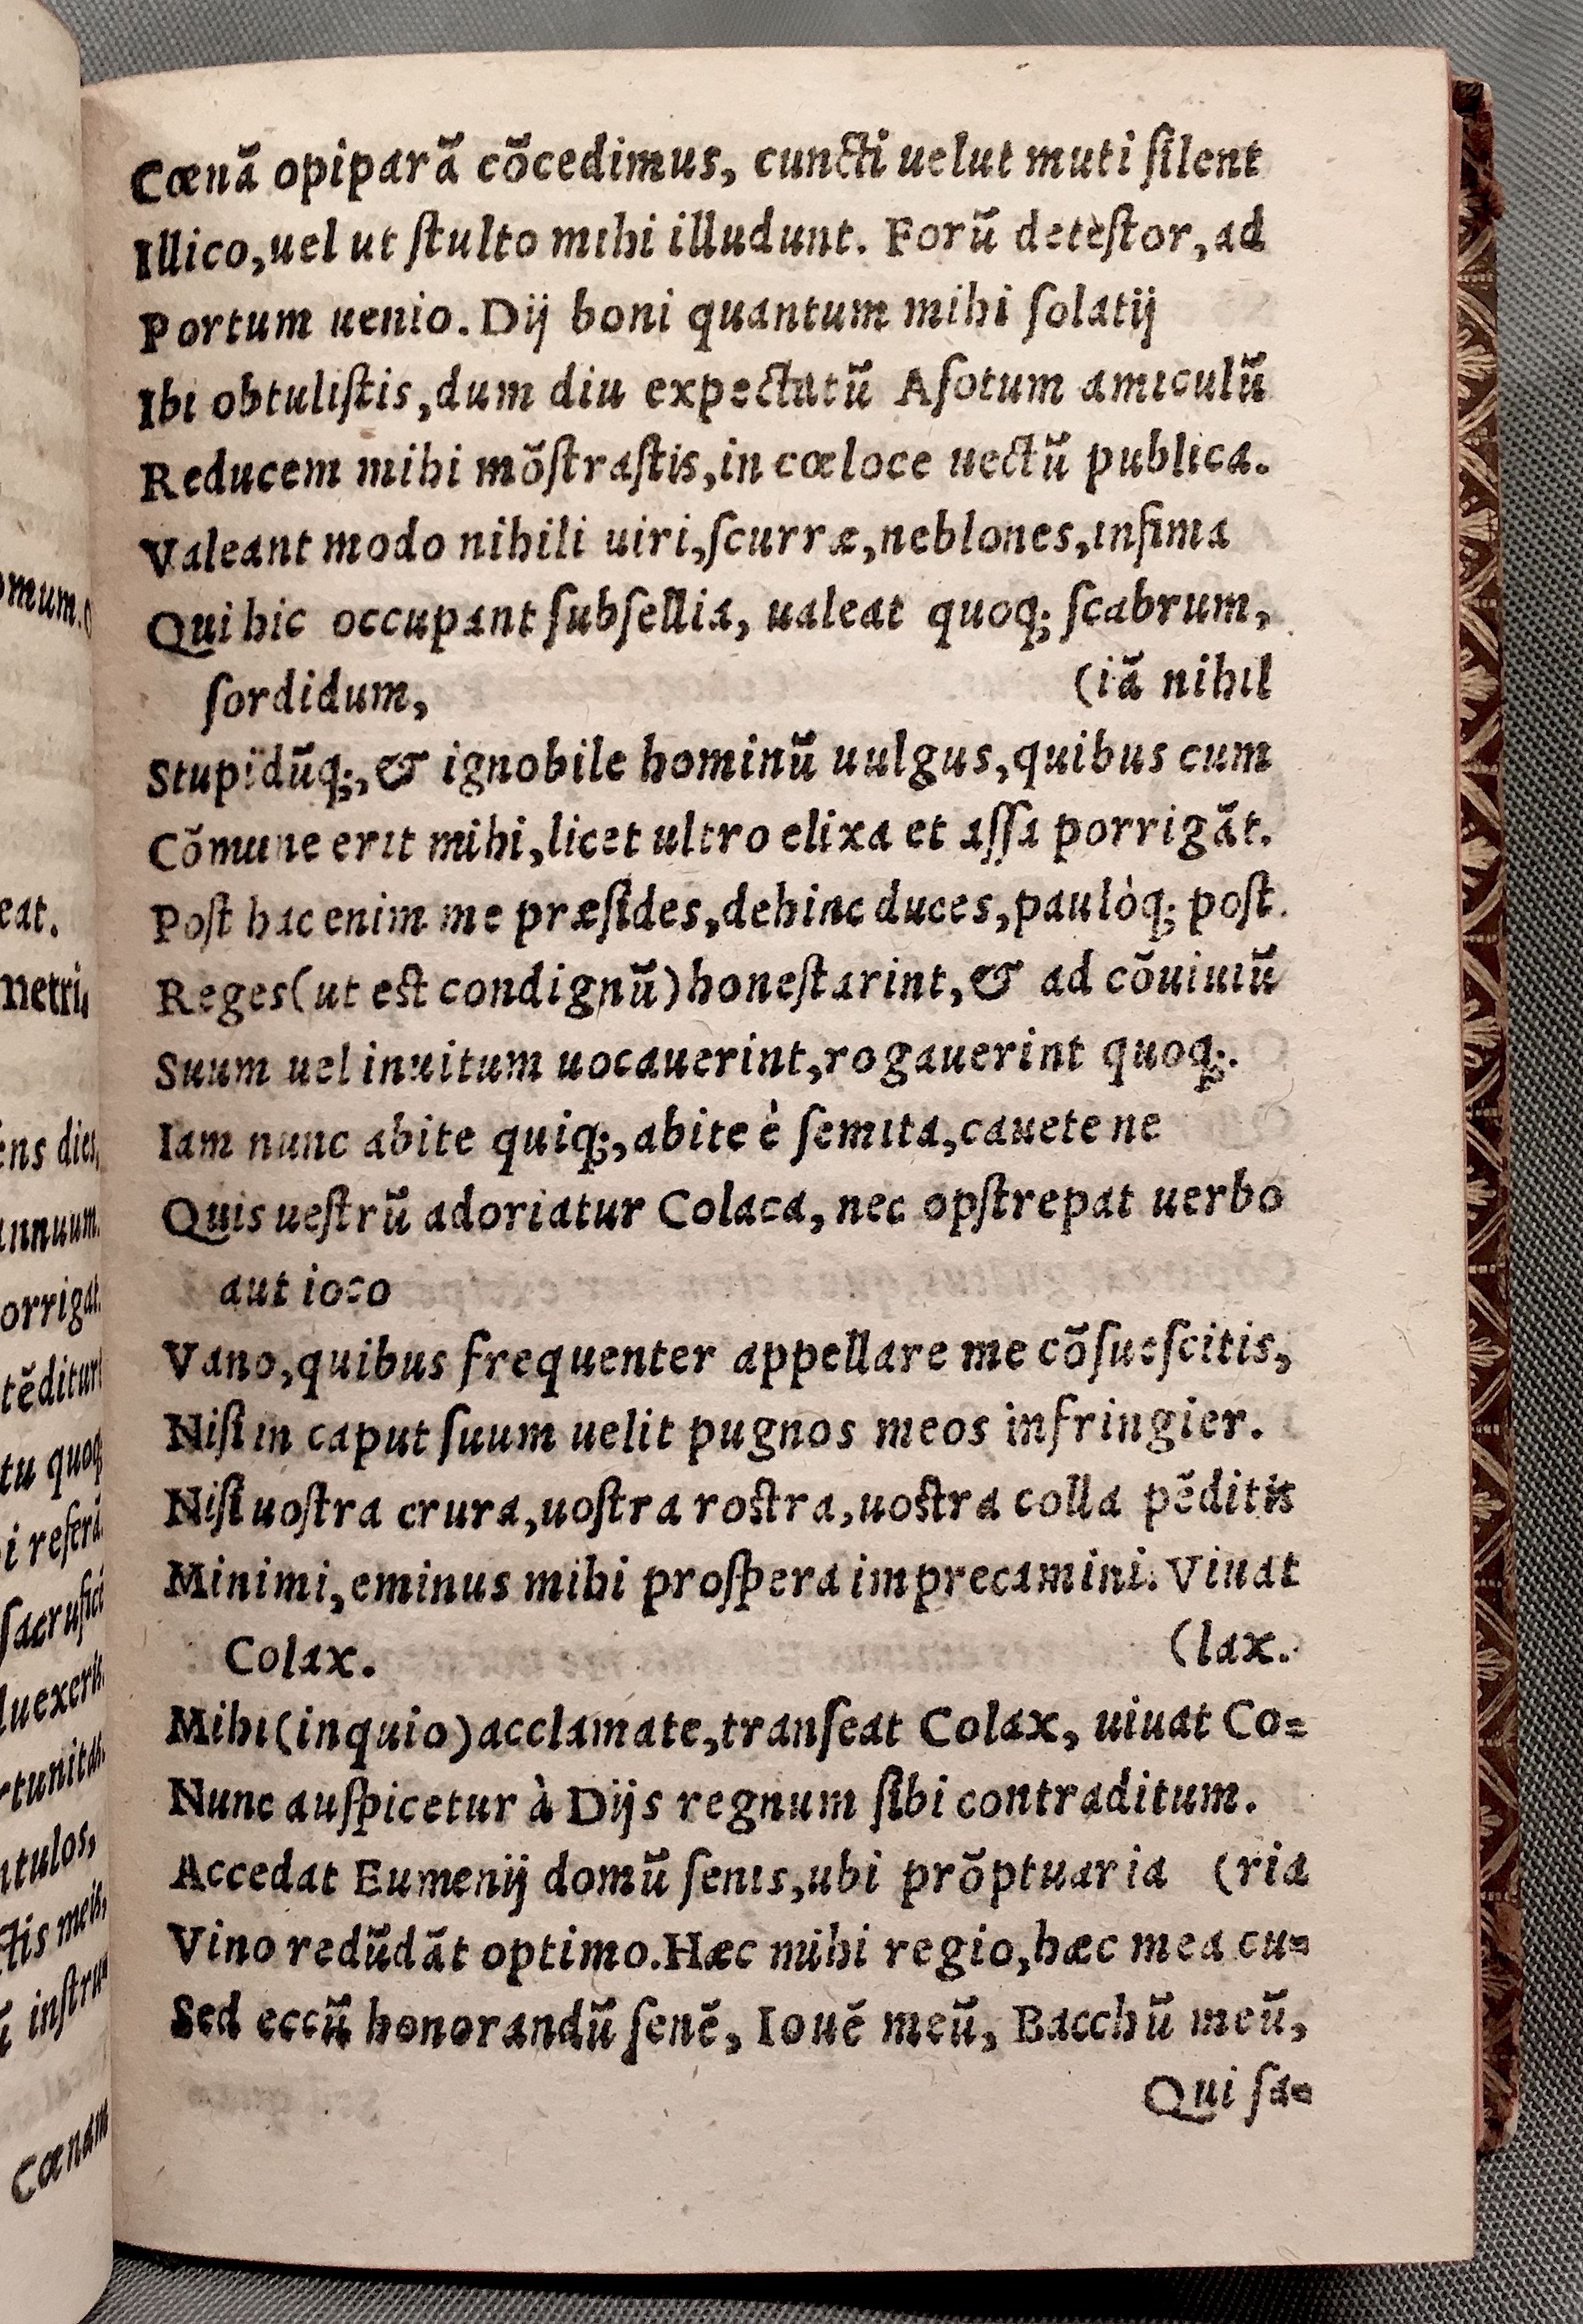 omum.
eat.
metri,
ens dies,
annuum.
orrigat.
tēditur
tu quoq;
i referā.
sacrifici
luexerit,
rtunitas,
ntulos,
ctis meis,
instru
Cœnam
Cœnā opiparā cōcedimus, cuncti uelut muti ſilent
Illico,uel ut ſtulto mihi illudunt. Forū deteſtor,ad
Portum uenio. Dij boni quantum mihi ſolatij
Ibi obtuliſtis,dum diu expectatū Aſotum amiculū
Reducem mihi mōſtraſtis,in cœloce uectū publica.
Valeant modo nihili uiri,ſcurræ,neblones,infima
Qui hic occupant ſubſellia, ualeat quoq; ſcabrum,
ſordidum, (iā nihil
Stupidūq;,& ignobile hominū uulgus,quibus cum
Cōmune erit mihi,licet ultro elixa et aſſa porrigāt.
Poſt hac enim me præſides,dehinc duces,paulòq; poſt.
Reges(ut eſt condignū)honeſtarint,& ad cōuiuiū
Suum uel inuitum uocauerint,rogauerint quoq;.
Iam nunc abite quiq;,abite è ſemita,cauete ne
Quis ueſtrū adoriatur Colaca, nec opſtrepat uerbo
aut ioco
Vano,quibus frequenter appellare me cōſueſcitis,
Niſi in caput ſuum uelit pugnos meos infringier.
Niſi uoſtra crura,uoſtra roſtra,uoſtra colla pēditis
Minimi,eminus mihi proſpera imprecamini. Viuat
Colax. (lax.
Mihi(inquio)acclamate,tranſeat Colax, uiuat Co=
Nunc auſpicetur à Dijs regnum ſibi contraditum.
Accedat Eumenij domū ſenis,ubi prōptuaria (ria
Vino redūdāt optimo.Hæc mihi regio,hæc mea cu=
Sed eccū honorandū ſenē, Iouē meū, Bacchū meū,
Qui ſa=